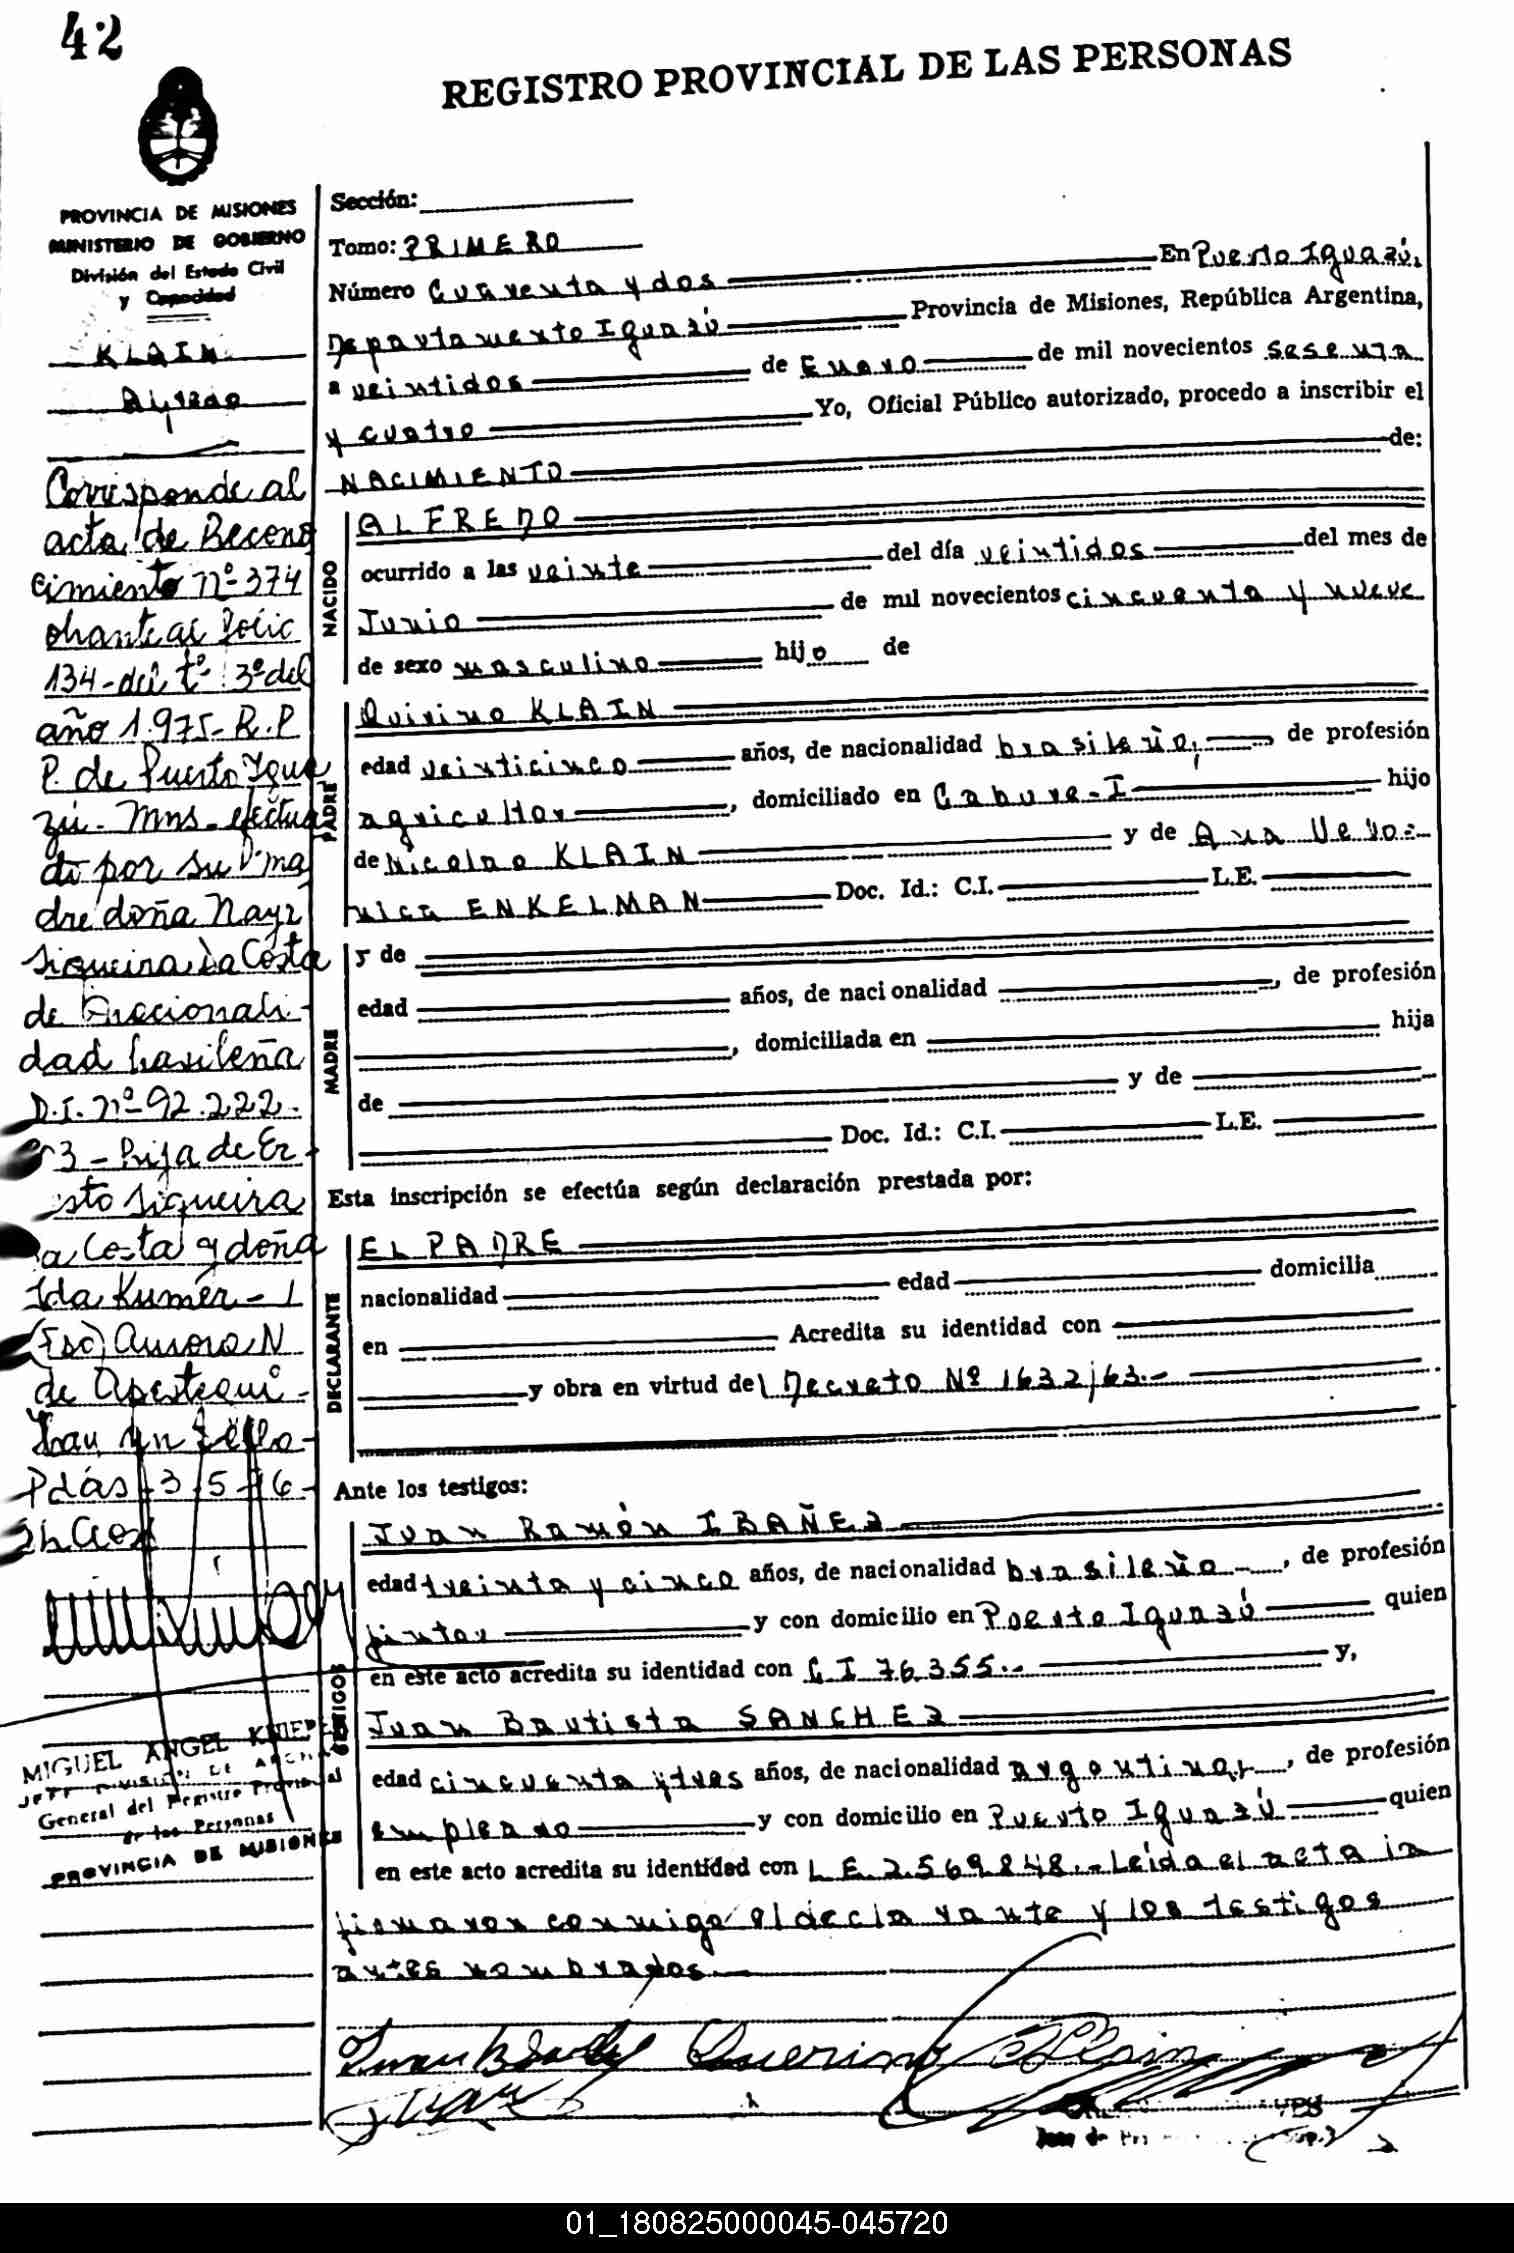 42
REGISTRO PROVINCIAL DE LAS PERSONAS
PROVINCIA DE MISIONES
MINISTERIO DE GOBIERNO
División del Estado Civil
y Capacidad
KLAIN
Alfredo
Corresponde al
acta de Recono
cimiento nº 374
obrante al folio
134 - del tº 3º del
año 1.975 - R.P
P. de Puerto Igua
zú - Mns. efectua
do por su ma
dre doña Nayr
Siqueira Da Costa
de nacionali-
dad brasileña
D.I. nº 92.222.
3 - hija de Er-
sto Siqueira
a Costa y doña
Ida Kumer -
(Fdo) Aurora N
de Apestegui -
Hay un sello -
Pdas - 3 - 5 - 76 -
MIGUEL ANGEL
JEFE DIVISION DE
General del Registro Provincial
de las Personas
PROVINCIA DE MISIONES
Sección:
Tomo: PRIMERO
Número Cuarenta y dos En Puerto Iguazú,
Departamento Iguazú Provincia de Misiones, República Argentina,
a veintidos de Enero de mil novecientos sesenta
y cuatro Yo, Oficial Público autorizado, procedo a inscribir el
NACIMIENTO de:
NACIDO
ALFREDO
ocurrido a las veinte del día veintidos del mes de
Junio de mil novecientos cincuenta y nueve
de sexo masculino hijo de
PADRE
Quirino KLAIN
edad veinticinco años, de nacionalidad brasileño, de profesión
agricultor, domiciliado en Cabure-I hijo
de Nicolao KLAIN y de Ana Vero=
nica ENKELMAN Doc. Id.: C.I. L.E.
MADRE
y de
edad años, de nacionalidad , de profesión
, domiciliada en hija
de y de
Doc. Id.: C.I. L.E.
Esta inscripción se efectúa según declaración prestada por:
DECLARANTE
EL PADRE
nacionalidad edad domicilia
en Acredita su identidad con
y obra en virtud del Decreto Nº 1632/63.-
Ante los testigos:
TESTIGOS
Juan Ramón IBAÑEZ
edad treinta y cinco años, de nacionalidad brasileño, de profesión
pintor y con domicilio en Puerto Iguazú quien
en este acto acredita su identidad con C I 76.355.- y,
Juan Bautista SANCHEZ
edad cincuenta y tres años, de nacionalidad argentina, de profesión
empleado y con domicilio en Puerto Iguazú quien
en este acto acredita su identidad con L E 2.569.848.- Leída el acta la
firmaron conmigo el declarante y los testigos
antes nombrados.
Querino Klain
01_180825000045-045720